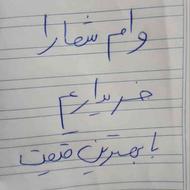 وام شما را
خریداریم
با بهترین قیمت